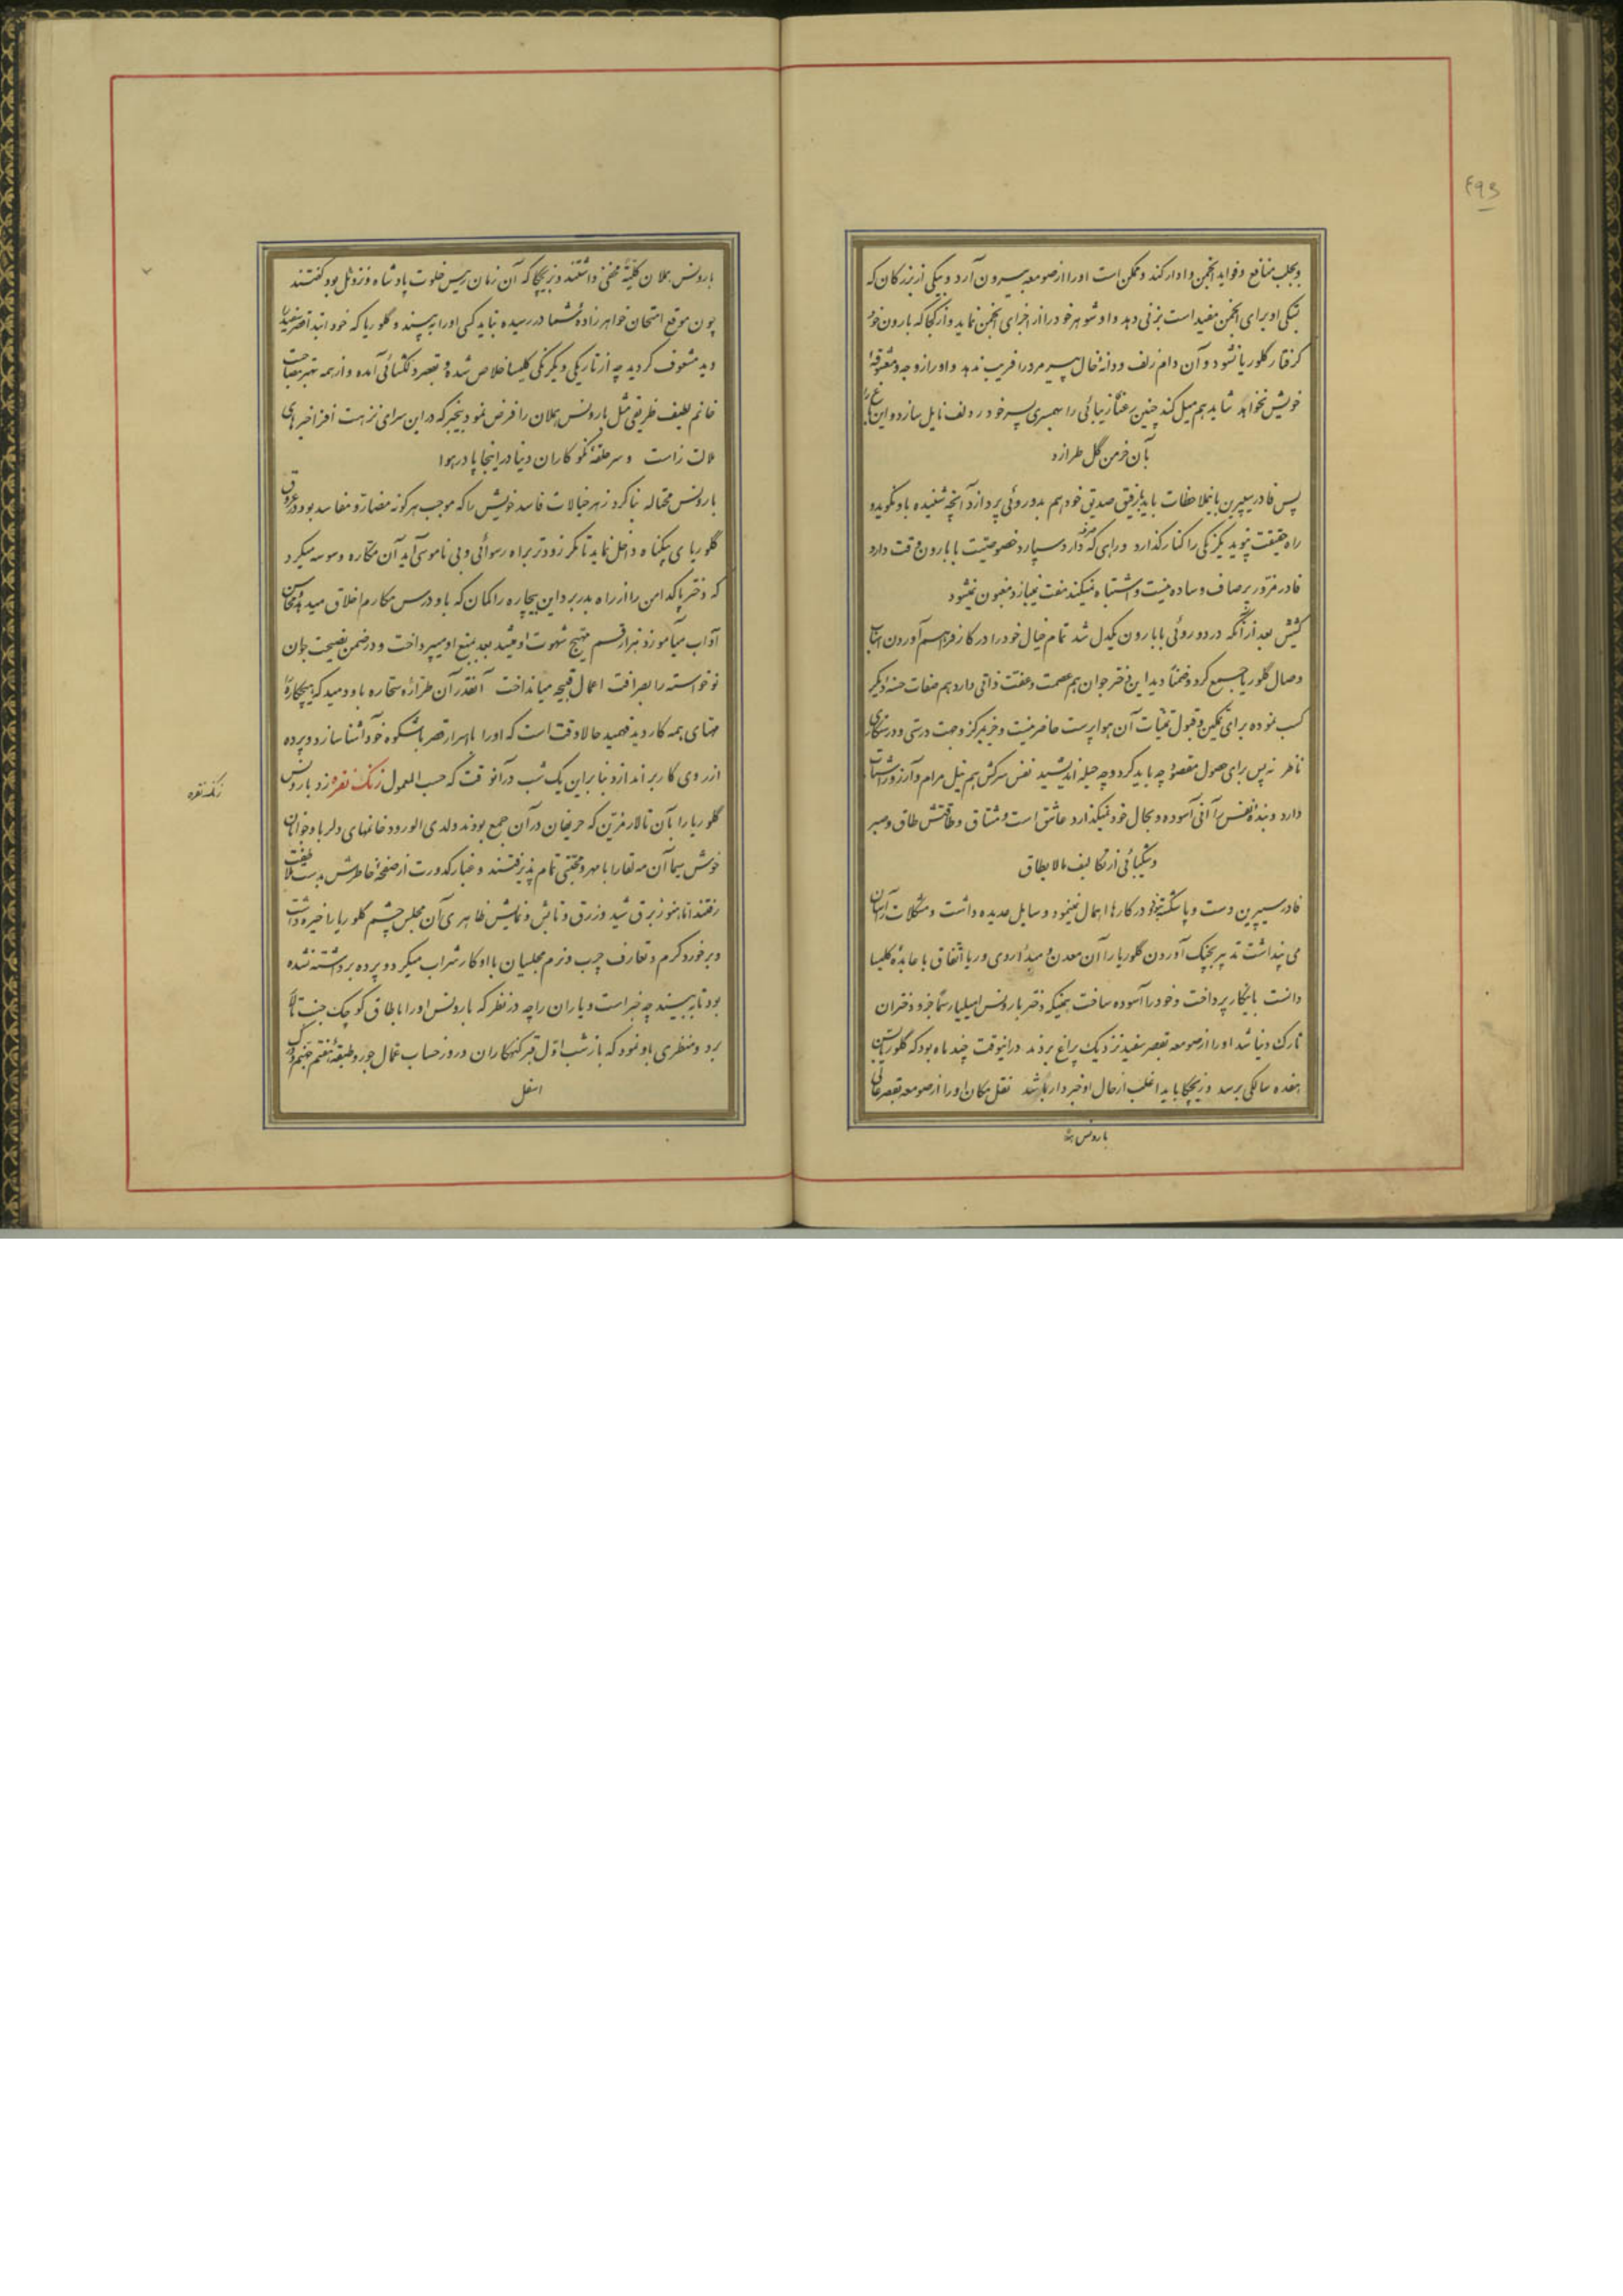 ۴۹۳
و بجلب منافع و فواید انجمن وادار کند و ممکن است او را از صومعه بیرون آرد و بیکی از بزرگان که
بستگی او برای انجمن مفید است بزنی دهد و او شوهر خود را از اجزای انجمن نماید و از کجا که بارون خود
گرفتار گلوریا نشود و آن دام زلف و دانهٔ خال پیر مرد را فریب ندهد و او را زوجه و معشوقهٔ
خویش نخواهد شاید هم میل کند چنین رعنا زیبائی را بهمسری پسر خود ردلف نایل سازد و این باغ را
بآن خرمن گل طرازد
پس فادر سیپرین باینملاحظات باید با رفیق صدیق خود هم بدوروئی پردازد آنچه شنیده باو نگوید و
راه حقیقت نپوید یکرنگی را کنار گذارد و راهی که صرفه دارد سپارد خصوصیت با بارون وقت دارد
فادر مزور پر صاف و ساده نیست و اشتباه نمیکند مفت نمیبازد و مغبون نمیشود
کشیش بعد از آنکه در دوروئی با بارون یکدل شد تمام خیال خود را در کار فراهم آوردن اسباب
وصال گلوریا جمع کرد و ضمناً دید این دختر جوان هم عصمت و عفت ذاتی دارد هم صفات حسنهٔ دیگر
کسب نموده برای تمکین و قبول تمنیات آن هواپرست حاضر نیست و جز بمرکز و جهت درستی و درستکاری
ناظر نه پس برای حصول مقصود چه باید کرد و چه حیله اندیشید نفس سرکش هم نیل مرام و آرزو را شتاب
دارد و بندهٔ نفس را آنی آسوده و بحال خود نمیگذارد عاشق است و مشتاق و طاقتش طاق و صبر
و شکیبائی از تکالیف مالایطاق
فادر سیپرین دست و پا شکسته نبود در کارها اهمال نمینمود وسایل عدیده داشت و مشکلات را آسان
می پنداشت تدبیر بچنگ آوردن گلوریا را آن معدن و مبدأ روی و ریا اتفاق با عابدهٔ کلیسا
دانست باینکار پرداخت و خود را آسوده ساخت همینکه دختر بارونس امیلیا رسماً جزو دختران
تارک دنیا شد او را از صومعه بقصر سفید نزدیک پراغ بردند در اینوقت چند ماه بود که گلوریا بسن
هفده سالگی برسد و زیچکا باید اغلب از حال او خبردار باشد نقل مکان او را از صومعه بقصر عالی
بارونس هملان
بارونس هملان کلیةً مخفی داشتند و بزیچکا که آن زمان رئیس خلوت پادشاه ونزوئل بود گفتند
چون موقع امتحان خواهرزادهٔ شما در رسیده نباید کسی او را ببیند و گلوریا که خود ابتدا قصر سفید را
دید مشعوف گردید چه از تاریکی و یکرنگی کلیسا خلاص شده بقصر دلگشائی آمده و از همه بهتر مصاحبت
خانم لطیف ظریفی مثل بارونس هملان را فرض نمود بیخبر که در این سرای نزهت افزا خبرهای
ملالت زاست و سر حلقهٔ نکوکاران دنیا در اینجا پا در هوا
بارونس محتاله بنا کرد زهر خیالات فاسد خویش را که موجب هرگونه مضار و مفاسد بود در عروق
گلوریای بیگناه داخل نماید تا مگر زودتر براه رسوائی و بی ناموسی آید آن مکاره وسوسه میکرد
که دختر پاکدامن را از راه بدر برد و این بیچاره را گمان که باو درس مکارم اخلاق میدهد و محاسن
آداب میآموزد هزار قسم مهیج شهوت او میشد بعد بمنع او میپرداخت و در ضمن نصیحت جوان
نوخواسته را بصرافت اعمال قبیحه میانداخت آنقدر آن طرارهٔ سحاره باو دمید که بیچاره را
مهیای همه کار دید فهمید حالا وقت است که او را باسرار قصر باشکوه خود آشنا سازد و پرده
از روی کار بر اندازد بنابراین یک شب در آنوقت که حسب المعمول زنگ نقره زد بارونس
گلوریا را بآن تالار مزین که حریفان در آن جمع بودند ولدی الورود خانمهای دلربا و جوانان
خوش سیما آن مه لقا را با مهر و محبتی تمام پذیرفتند و غبار کدورت از صفحهٔ خاطرش بدست ملاطفت
رفتند اما هنوز برق شید و زرق و تابش و نمایش ظاهری آن مجلس چشم گلوریا را خیره داشت
و برخورد گرم و تعارف چرب و نرم مجلسیان با او کار شراب میکرد و پرده برداشته نشده
بود تا ببیند چه خبر است و یاران را چه در نظر که بارونس او را باطاق کوچک جنب تالار
برد و منظری باو نمود که باز شب اول قبر گنهکاران و روز حساب عمال جور و طبقهٔ هفتم جهنم و درک
اسفل
زنگ نقره